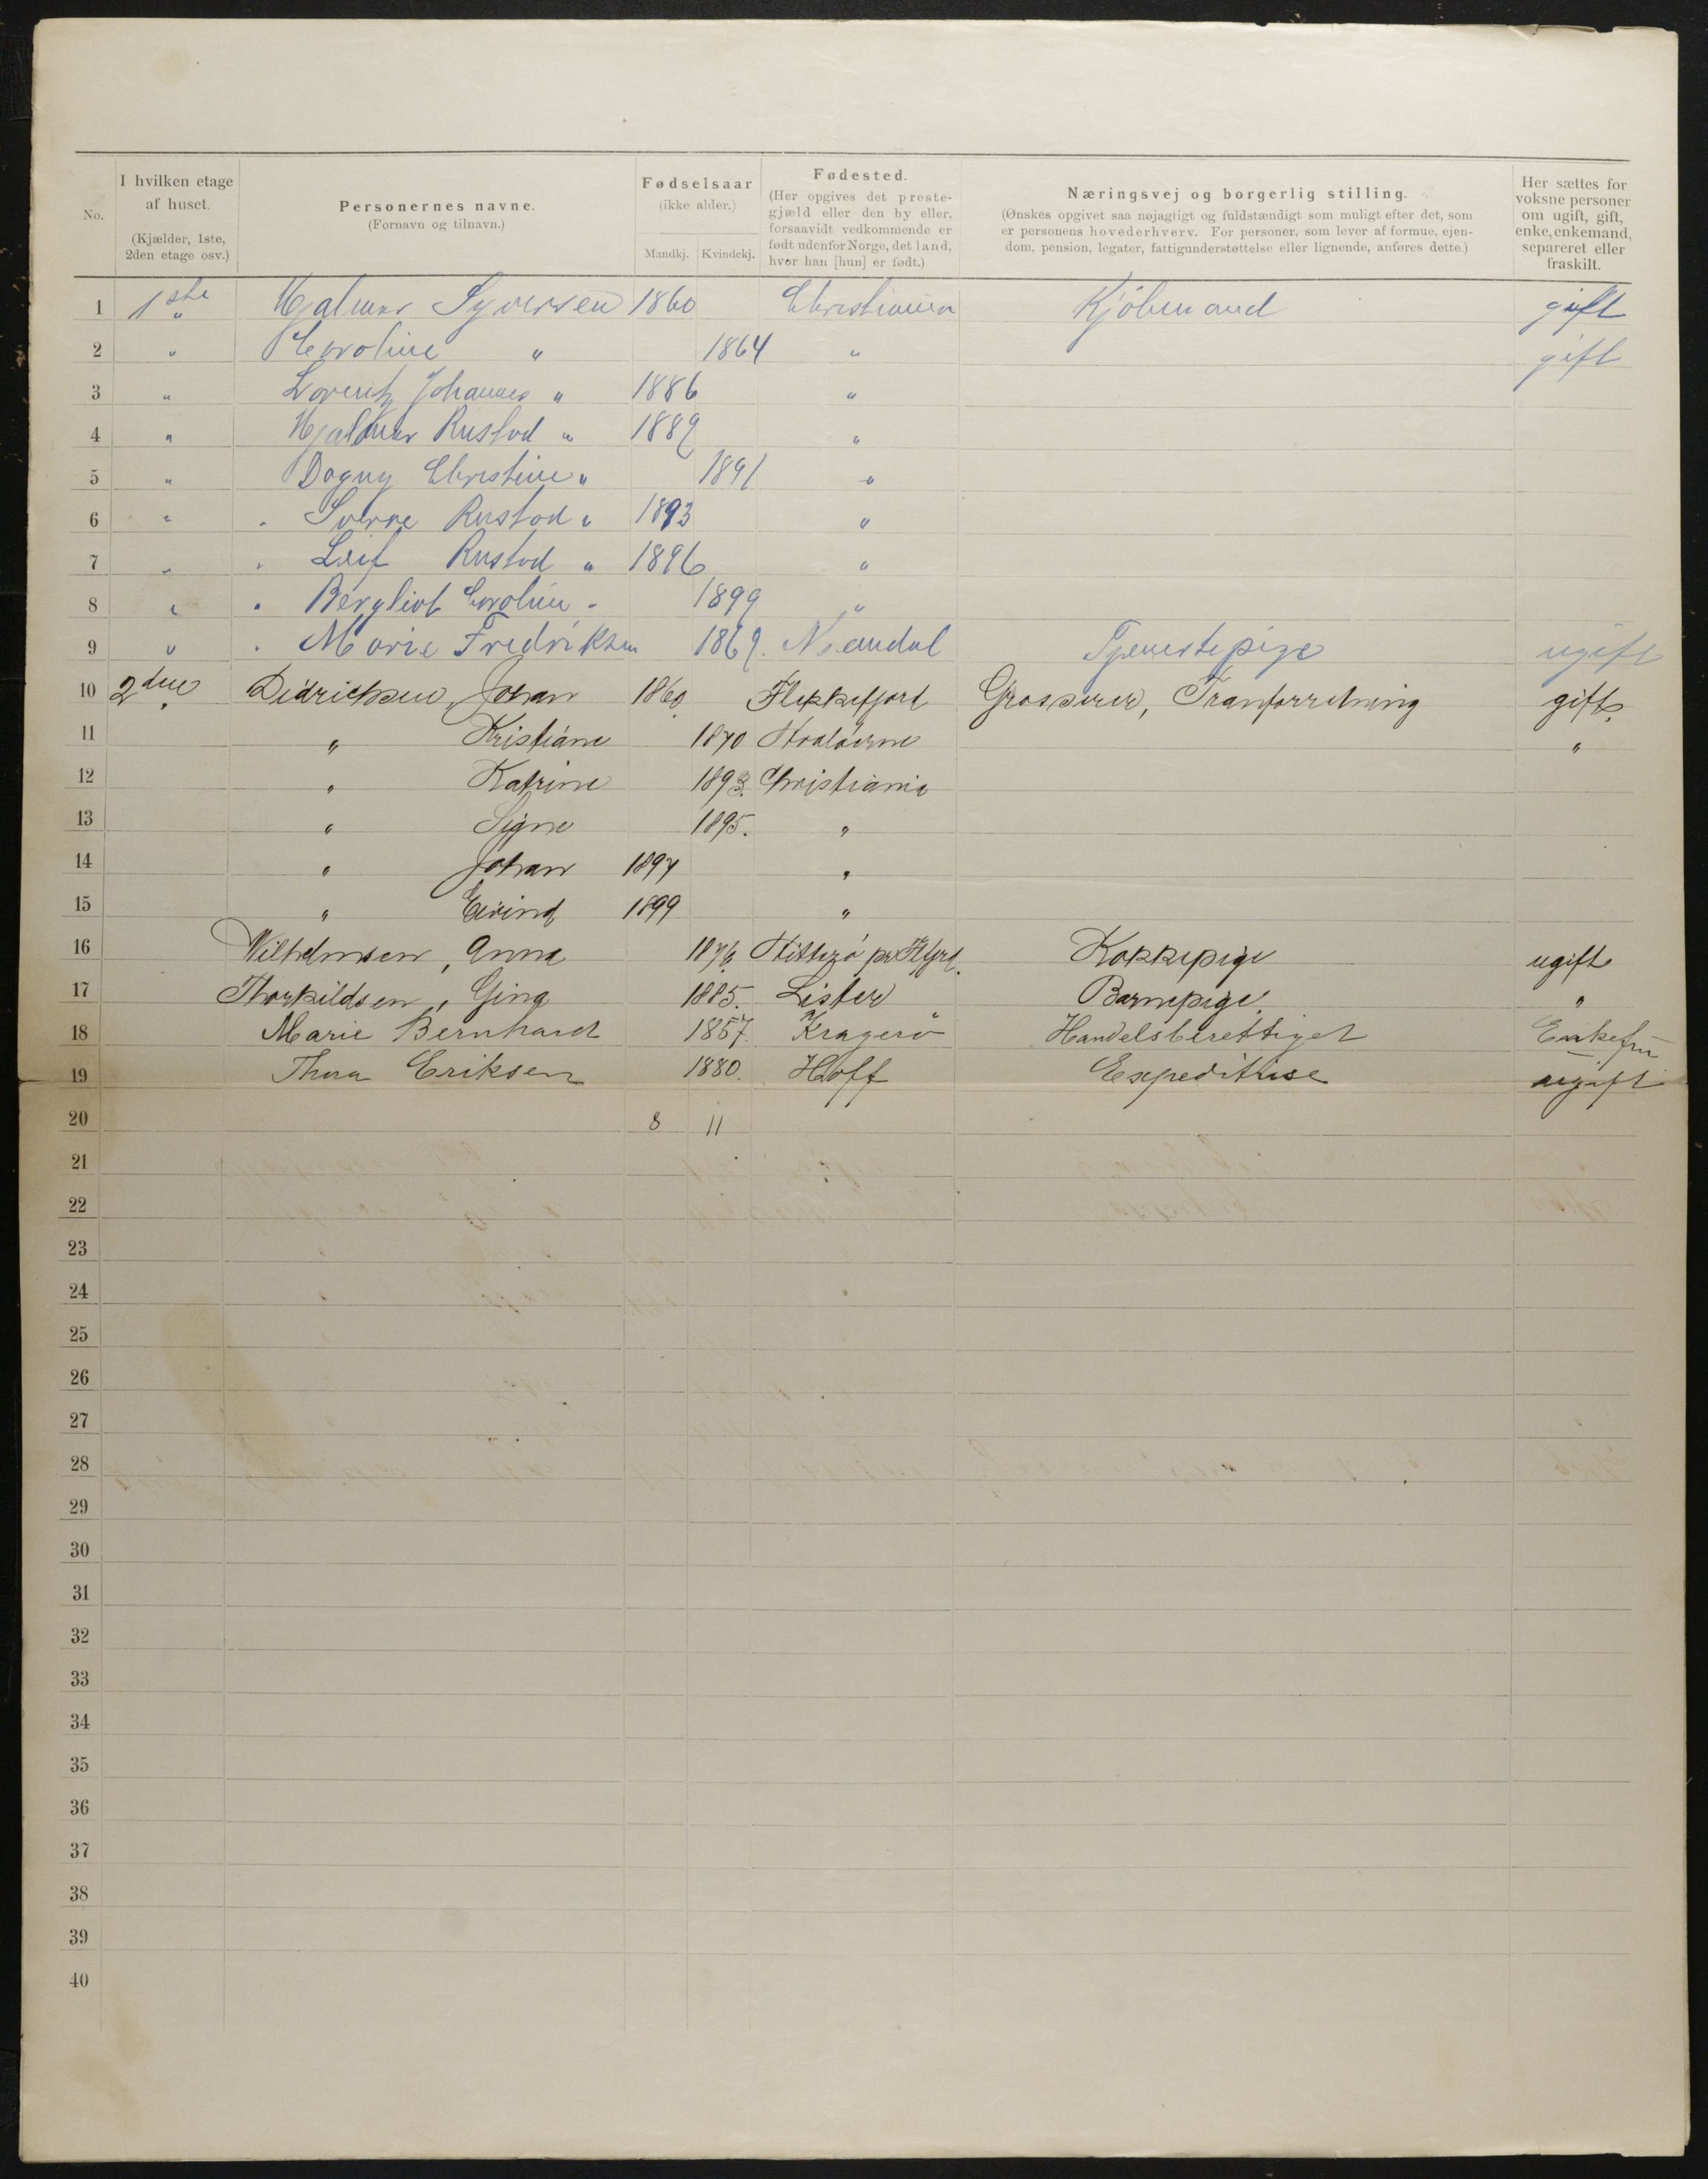 No. I hvilken etage af huset. (Kjælder, 1ste, 2den etage osv.) Personernes navne. (Fornavn og tilnavn.) Fødselsaar (ikke alder.) Mandkj. Kvindekj. Fødested. (Her opgives det prestegjæld eller den by eller, forsaavidt vedkommende er født udenfor Norge, det land, hvor han [hun] er født.) Næringsvej og borgerlig stilling. (Ønskes opgivet saa nøjagtigt og fuldstændigt som muligt efter det, som er personens hovederhverv. For personer, som lever af formue, ejendom, pension, legater, fattigunderstøttelse eller lignende, anføres dette.) Her sættes for voksne personer om ugift, gift, enke, enkemand, separeret eller fraskilt.
1 1ste " Hjalmar Syversen 1860 Christiania Kjöbmand gift
2 " Caroline " 1864 " gift
3 " Lorentz Johannes " 1886 "
4 " Hjalmar Rustad " 1889 "
5 " Dagny Christine " 1891 "
6 " Sverre Rustad " 1893 "
7 " Leif Rustad " 1896 "
8 " Bergliot Caroline " 1899 "
9 " Marie Fredriksen 1869. Mandal Tjenestepige ugift
10 2den Didrichsen, Johan 1860 Flekkefjord Grosserer, Tranforretning gift
11 " Kristiane 1870 "
12 " Katrine 1893. Christiania
13 " Signe 1895. "
14 " Johan 1897 "
15 " Eivind 1899 "
16 Wilhelmsen, Anna 1876 Hitterö pr Flfjrd. Kokkepige ugift
17 Thorkildsen, Gina 1885. Lister Barnepige "
18 Marie Bernhard 1857 Kragerö Handelsberettiget Enkefru
19 Thora Eriksen 1880. Hoff Expeditrise ugift
20 8 11
21
22
23
24
25
26
27
28
29
30
31
32
33
34
35
36
37
38
39
40